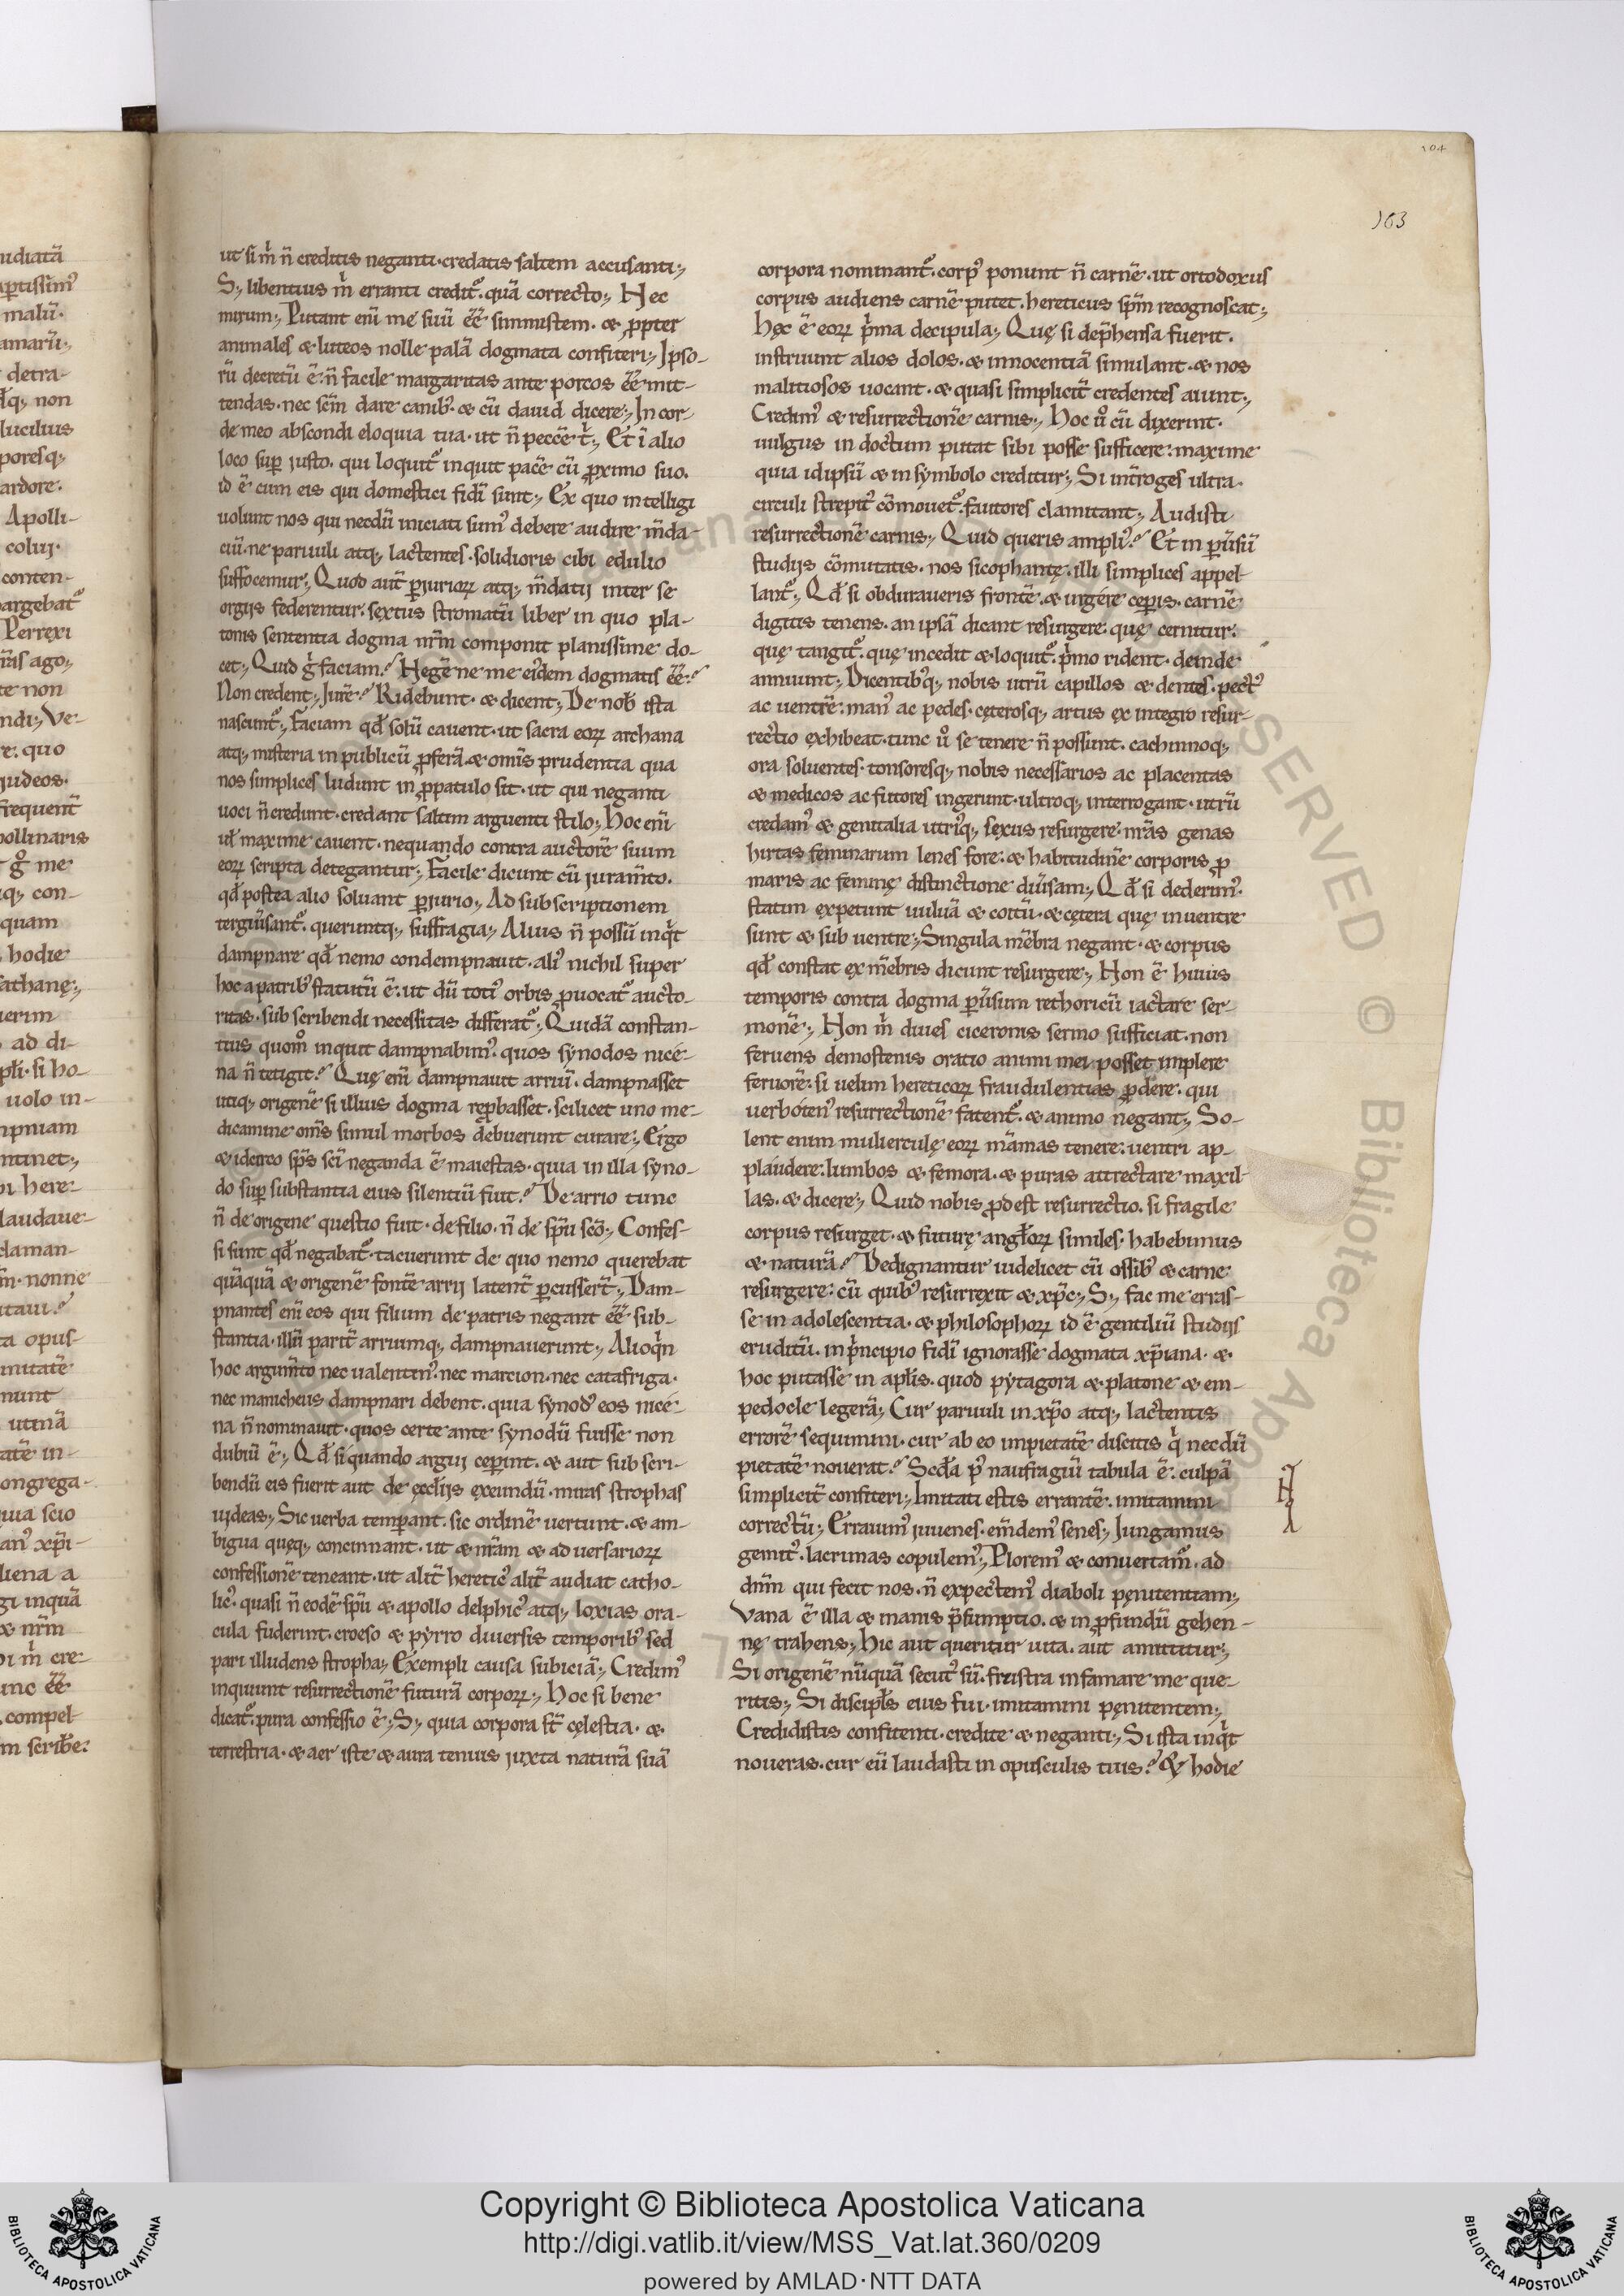 104
103
ut si m̊ n̄ creditis neganti·credatis saltem accusanti;
S; libentius m̊ erranti credit᷑·quā correcto; Nec
mirum; Putant eni̅ me suū ee̅ simmistem· & ꝓpter
animales & luteos nolle palā dogmata confiteri; Ipso-
rū decretū ē· n̄ facile margaritas ante porcos ee̅ mit-
tendas· nec sc̅m dare canib᷒· & cū dauid dicere; In cor-
de meo abscondi eloquia tua· ut n̄ pecce̅ t̊; Et ī alio
loco suꝑ iusto· qui loquit᷑ inquit pacē cū ꝓximo suo·
id ē cum eis qui domestici fidi̅ sunt; Ex quo intelligi
uolunt nos qui necdū iniciati sum᷒ debere audire m̅da-
ciū· ne paruuli atq; lactentes· solidioris cibi edulio
suffocemur; Quod aut̅ ꝑiurioꝝ atq; m̅datij inter se
orgiis federentur· sextus stromatū liber in quo pla-
tonis sententia dogma nr̅m componit planissime do-
cet; Quid g̊ faciam? Nege̅ ne me ei᷒dem dogmatis ee̅?
Non credent; Jure̅? Ridebunt· & dicent; De nob̅ ista
nascunt᷑; Faciam qđ solū cauent· ut sacra eoꝝ archana
atq; misteria in publicū ꝓferā· & omi̅s prudentia qua
nos simplices ludunt in ꝓpatulo sit· ut qui neganti
uoci n̄ credunt· credant saltim arguenti stilo; Hoc eni̅
uł maxime cauent· nequando contra auctorē suum
eoꝝ scripta detegantur; Facile dicunt cū iuram̅to·
qđ postea alio soluant ꝑiurio; Ad subscriptionem
tergiu̅sant᷑· queruntq; suffragia; Alius n̄ possū inq̊t
dampnare qđ nemo condempnauit· ali᷒ nichil super
hoc a patrib᷒ statutū ē· ut dū toti᷒ orbis ꝓuocat᷑ aucto-
ritas· subscribendi necessitas differat᷑; Quidā constan-
tius quom̊ inquit dampnabim᷒· quos synodos nicé-
na n̄ tetigit? Quę eni̅ dampnauit arriū· dampnasset
utiq; origenē si illius dogma reꝓbasset· scilicet uno me-
dicamine om̅s simul morbos debuerunt curare; Ergo
& idcirco sp̅s sc̅i neganda ē maiestas· quia in illa syno-
do suꝑ substantia eius silentiū fuit? De arrio tunc
n̄ de origene questio fuit· de filio· n̄ de sp̅u sc̅o; Confes-
si sunt qđ negabat᷑· tacuerunt de quo nemo querebat
quāquā & origenē fontē arrij latent̅ ꝑcussert̅; Dam-
pnantes eni̅ eos qui filium de patris negant ee̅ sub-
stantia· illū parit̅ arriumq; dampnauerunt; Alioq̊n
hoc argum̅to nec ualentin᷒· nec marcion· nec catafriga·
nec manicheus dampnari debent· quia synod᷒ eos nicé-
na n̄ nominauit· quos certe ante synodū fuisse non
dubiū ē; Qđ si quando argui ceꝑint· & aut subscri-
bendū eis fuerit aut de ęccl̅ijs exeundū· miras strophas
uideas; Sic uerba temꝑant· sic ordinē uertunt· & am-
bigua quęq; concinnant· ut & nr̅am & aduersarioꝝ
confessionē teneant· ut alit̅ heretic᷒ alit̅ audiat catho-
lic᷒· quasi n̄ eodē sp̅u & apollo delphic᷒ atq; loxias ora-
cula fuderint· croeso & pyrro diuersis temporib᷒ sed
pari illudens stropha; Exempli causa subiciā; Credim᷒
inquiunt resurrectionē futurā corporꝝ; Hoc si bene
dicat᷑· pura confessio ē; S; quia corpora st̅ cęlestia· &
terrestria· & aer iste & aura tenuis juxta naturā suā
corpora nominant᷑· corp᷒ ponunt n̄ carnē· ut ortodoxus
corpus audiens carnē putet· hereticus sp̅m recognoscat;
hęc ē eoꝝ p̊ma decipula; Quę si dep̅hensa fuerit·
instruunt alios dolos· & innocentiā simulant· & nos
malitiosos uocant· & quasi simplicit̅ credentes aiunt;
Credim᷒ & resurrectionē carnis; Hoc ů cū dixerint·
uulgus indoctum putat sibi posse sufficere· maxime
quia idipsū & in symbolo creditur; Si int̅roges ultra·
circuli strepit᷒ cōmouet᷑· fautores clamitant; Audisti
resurrectionē carnis; Quid queris ampli᷒? Et in ꝑu̅sū
studijs cōmutatis· nos sicophantę· illi simplices appel-
lant᷑; Qđ si obduraueris frontē· & urgére ceꝑis· carnē
digitis tenens· an ipsā dicant resurgere· quę cernitur·
quę tangit᷑· quę incedit & loquit᷑· p̊mo rident· deinde
annuunt; Dicentib᷒q; nobis utrū capillos & dentes· pect᷒
ac uentrē· man᷒ ac pedes· cęterosq; artus ex integro resur-
rectio exhibeat· tunc ů se tenere n̄ possunt· cachinnoq;
ora soluentes· tonsoresq; nobis necessarios ac placentas
& medicos ac sutores ingerunt· ultroq; interrogant· utrū
credam᷒ & genitalia utri᷒q; sexus resurgere· nr̅as genas
hirtas feminarum lenes fore· & habitudinē corporis ꝓ
maris ac feminę distinctione diu̅sam; Qđ si dederim᷒·
statim expetunt uuluā & coitū· & cętera quę in uentre
sunt & sub uentre; Singula me̅bra negant· & corpus
qđ constat ex me̅bris dicunt resurgere; Non ē huius
temporis contra dogma ꝑu̅sum rethoricū iactare ser-
monē; Non m̊ diues ciceronis sermo sufficiat· non
feruens demostenis oratio animi mei posset implere
feruorē· si uelim hereticoꝝ fraudulentias ꝓdere· qui
uerbóten᷒ resurrectionē fatent᷑· & animo negant; So-
lent enim mulierculę eoꝝ ma̅mas tenere· uentri ap-
plaúdere· lumbos & femora· & puras attrectare maxil-
las· & dicere; Quid nobis ꝓdest resurrectio· si fragile
corpus resurget· & futurę angłoꝝ similes· habebimus
& naturā? Dedignantur uidelicet cū ossib᷒ & carne
resurgere· cū quib᷒ resurrexit & xp̅c; S; fac me erras-
se in adolescentia· & philosophoꝝ id ē gentiliū studijs
eruditū· in p̊ncipio fidi̅ ignorasse dogmata xp̅iana· &
hoc putasse in apl̅is· quod pytagora & platone & em-
pedocle legerā; Cur paruuli in xp̅o atq; lactentis
errorē sequimini· cur ab eo impietatē discitis q̊ necdū
pietatē nouerat? Scđa p᷒ naufragiū tabula ē· culpā
simplicit̅ confiteri; Imitati estis errantē· imitamini
correctū; Erraum᷒ iuuenes· em̅dem᷒ senes; Jungamus
gemit᷒· lacrimas copulem᷒; Plorem᷒ & conuertam᷑· ad
dn̅m qui fecit nos· n̄ expectem᷒ diaboli pęnitentiam;
Vana ē illa & inanis p̅sumptio· & in ꝓfundū gehen-
nę trahens; Hic aut queritur uita· aut amittitur;
Si origenē nu̅quā secut᷒ sū· frustra infamare me que-
ritis; Si discipłs eius fui· imitamini pęnitentem;
Credidistis confitenti· credite & neganti; Si ista inq̊t
noueras· cur eū laudasti in opusculis tuis? Qui hodie
Copyright © Biblioteca Apostolica Vaticana
http://digi.vatlib.it/view/MSS_Vat.lat.360/0209
powered by AMLAD·NTT DATA
BIBLIOTECA APOSTOLICA VATICANA
BIBLIOTECA APOSTOLICA VATICANA